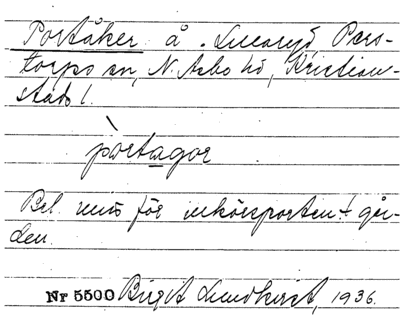 Portåker å . Lmaryd Pers-
torps sn, N. Åsbo hd, Kristian-
stads l.
pòrtagor
Bel. mitt för inkörsporten t. går-
den.
Nr 5500 Birgit Lundkvist, 1936.